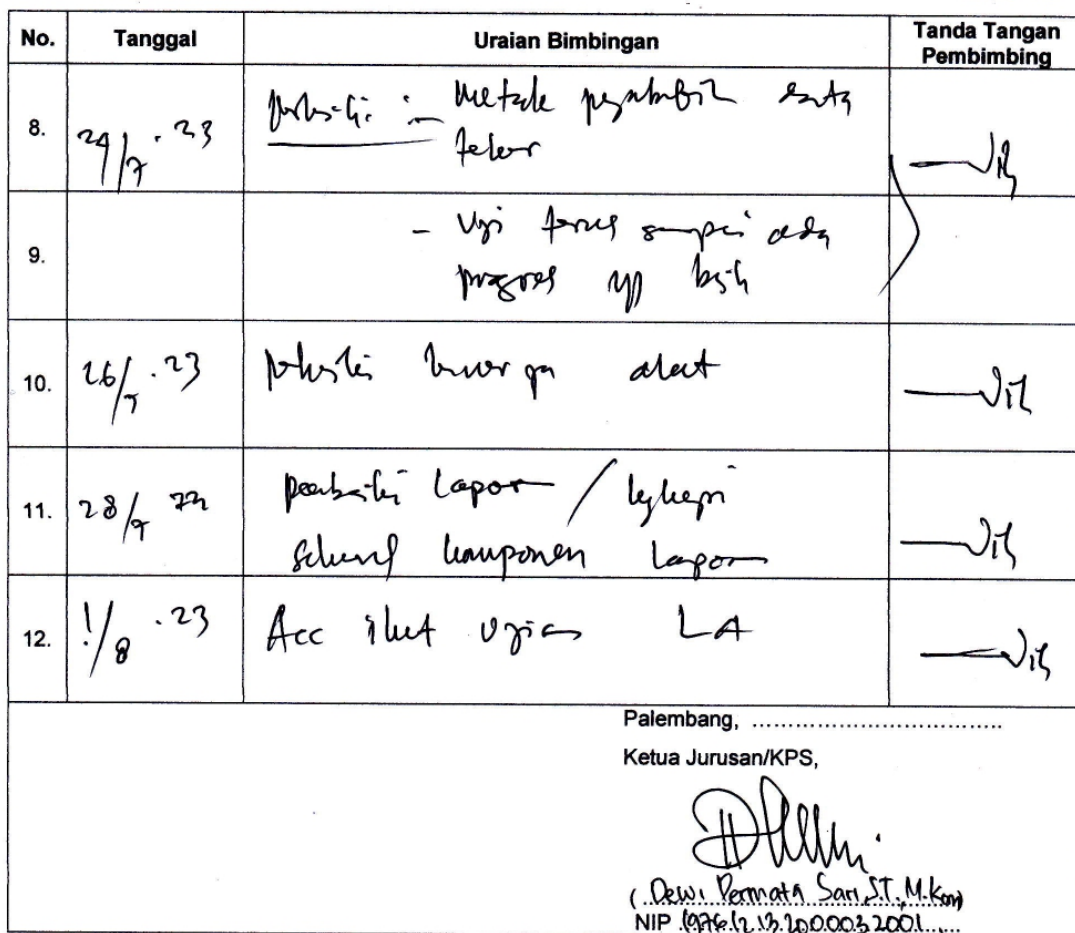 No. Tanggal Uraian Bimbingan Tanda Tangan Pembimbing
8. 24/7 . 23 perbaiki : - Metode data
telor
9. - Uji terus sampai ada
progres yg
10. 26/7 . 23 perbaiki alat
11. 28/7 perbaiki lapor / lengkapi
seluruh komponen lapor
12. 1/8 . 23 Acc ikut ujian LA
Palembang, ..................................
Ketua Jurusan/KPS,
( Dewi Permata Sari, S.T., M.Kom)
NIP 197612132000032001